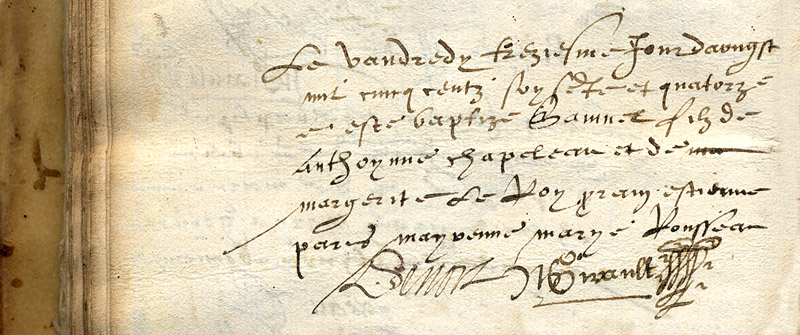 Le vandredy treziesme Jour daougst
mil cincq centz soysente et quatorze
a este baptize Samuel filz de
Anthoynne chapeleau et de
margerite Le Roy parain estienne
paris mayrenne marye Rousseau